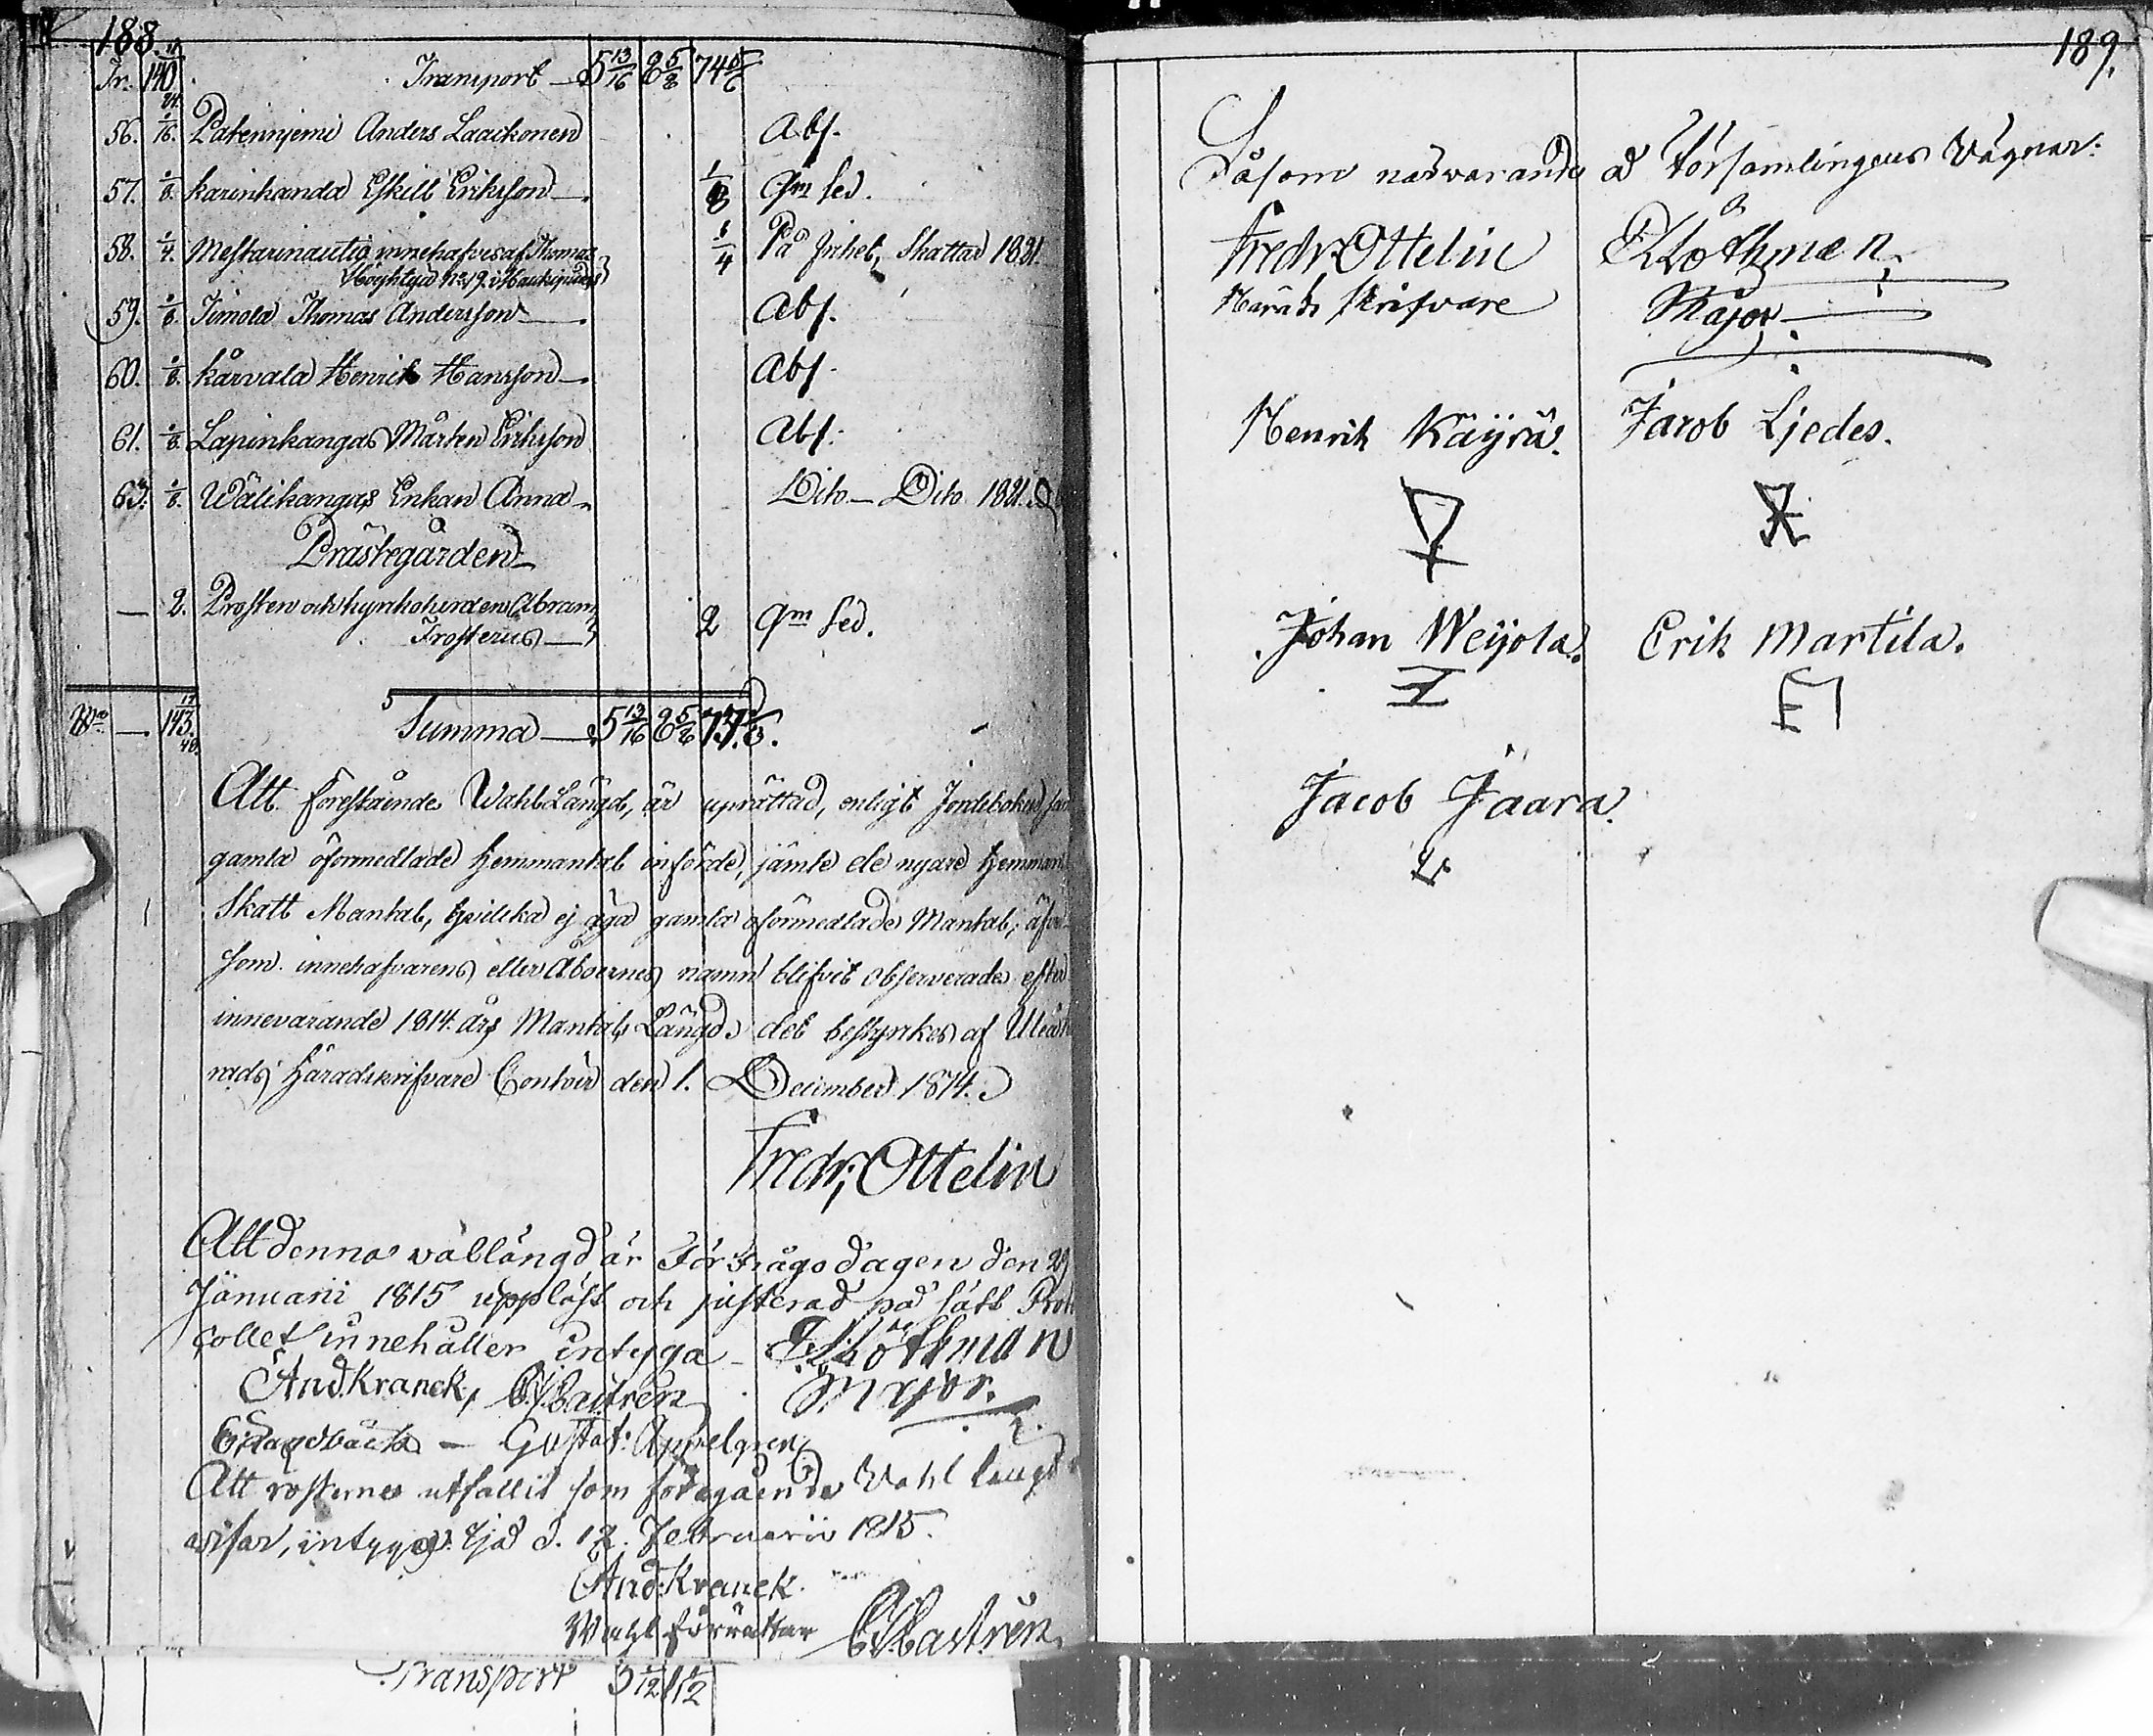 188.
Tr. 140 17/24. Transport 5 13/16 8 5/8 74 5/6
56. 1/16. Patenniemi Anders Laaikonen Abs.
57. 1/8. Karinkanda Eskill Eriksson 1/8 Qm sed.
58. 1/4. Mestarinautio innehafves af Thomas 1/4 På frihet, Skattad 1821.
Höyhtyä No 19. i Haukipudas
59. 1/8. Timola Thomas Andersson Abs.
60. 1/8. Kårvala Henrik Hansson Abs.
61. 1/8. Lapinkangas Mårten Eriksson Abs.
63. 1/8. Wälikangas Enkan Anna Dito Dito 1821.
Prästegården
— 2. Prosten och kyrkoherden Abram
Frosterus 2 qm sed.
— 143. 17/48. Summa 5 13/16 8 5/8 77.
Att förestående Wahl Längd, är uprättad, enligt Jordeboken,
gamla oförmedlade Hemmantal införde, jämte de nyare Hemmans
Skatt Mantal, hvilka ej äga gamla oförmedlade Mantal, äfven
som innehafvarens eller Åboernes namn blifvit observerade efter
innevarande 1814. års Mantals Längd; det bestyrkes af Uleå
rads Häradskrifvare Contoir den 1. December 1814.
Fredr; Ottelin
Att denna vallängd är Förfrågodagen den 29
Januarii 1815 uppläst och justerad på sätt Proto
collet innehåller intyga
And. Kranck, E. Castrén Major.
Gustaf: Appelgren
Att rösterne utfallit som föregående Wahl längd
visar, intygas. Ijo d. 12. Februarii 1815.
And: Kranck.
Wahl förrättar Castrén
Transport 5 1/12
189.
Såsom närvarande å Församlingens Vägnar:
Fredr. Ottelin
Härads skrifvare Major
Henrik Käyrä. Jacob Ljedes.
Johan Weijola. Erik Martila.
Jacob Jaara.